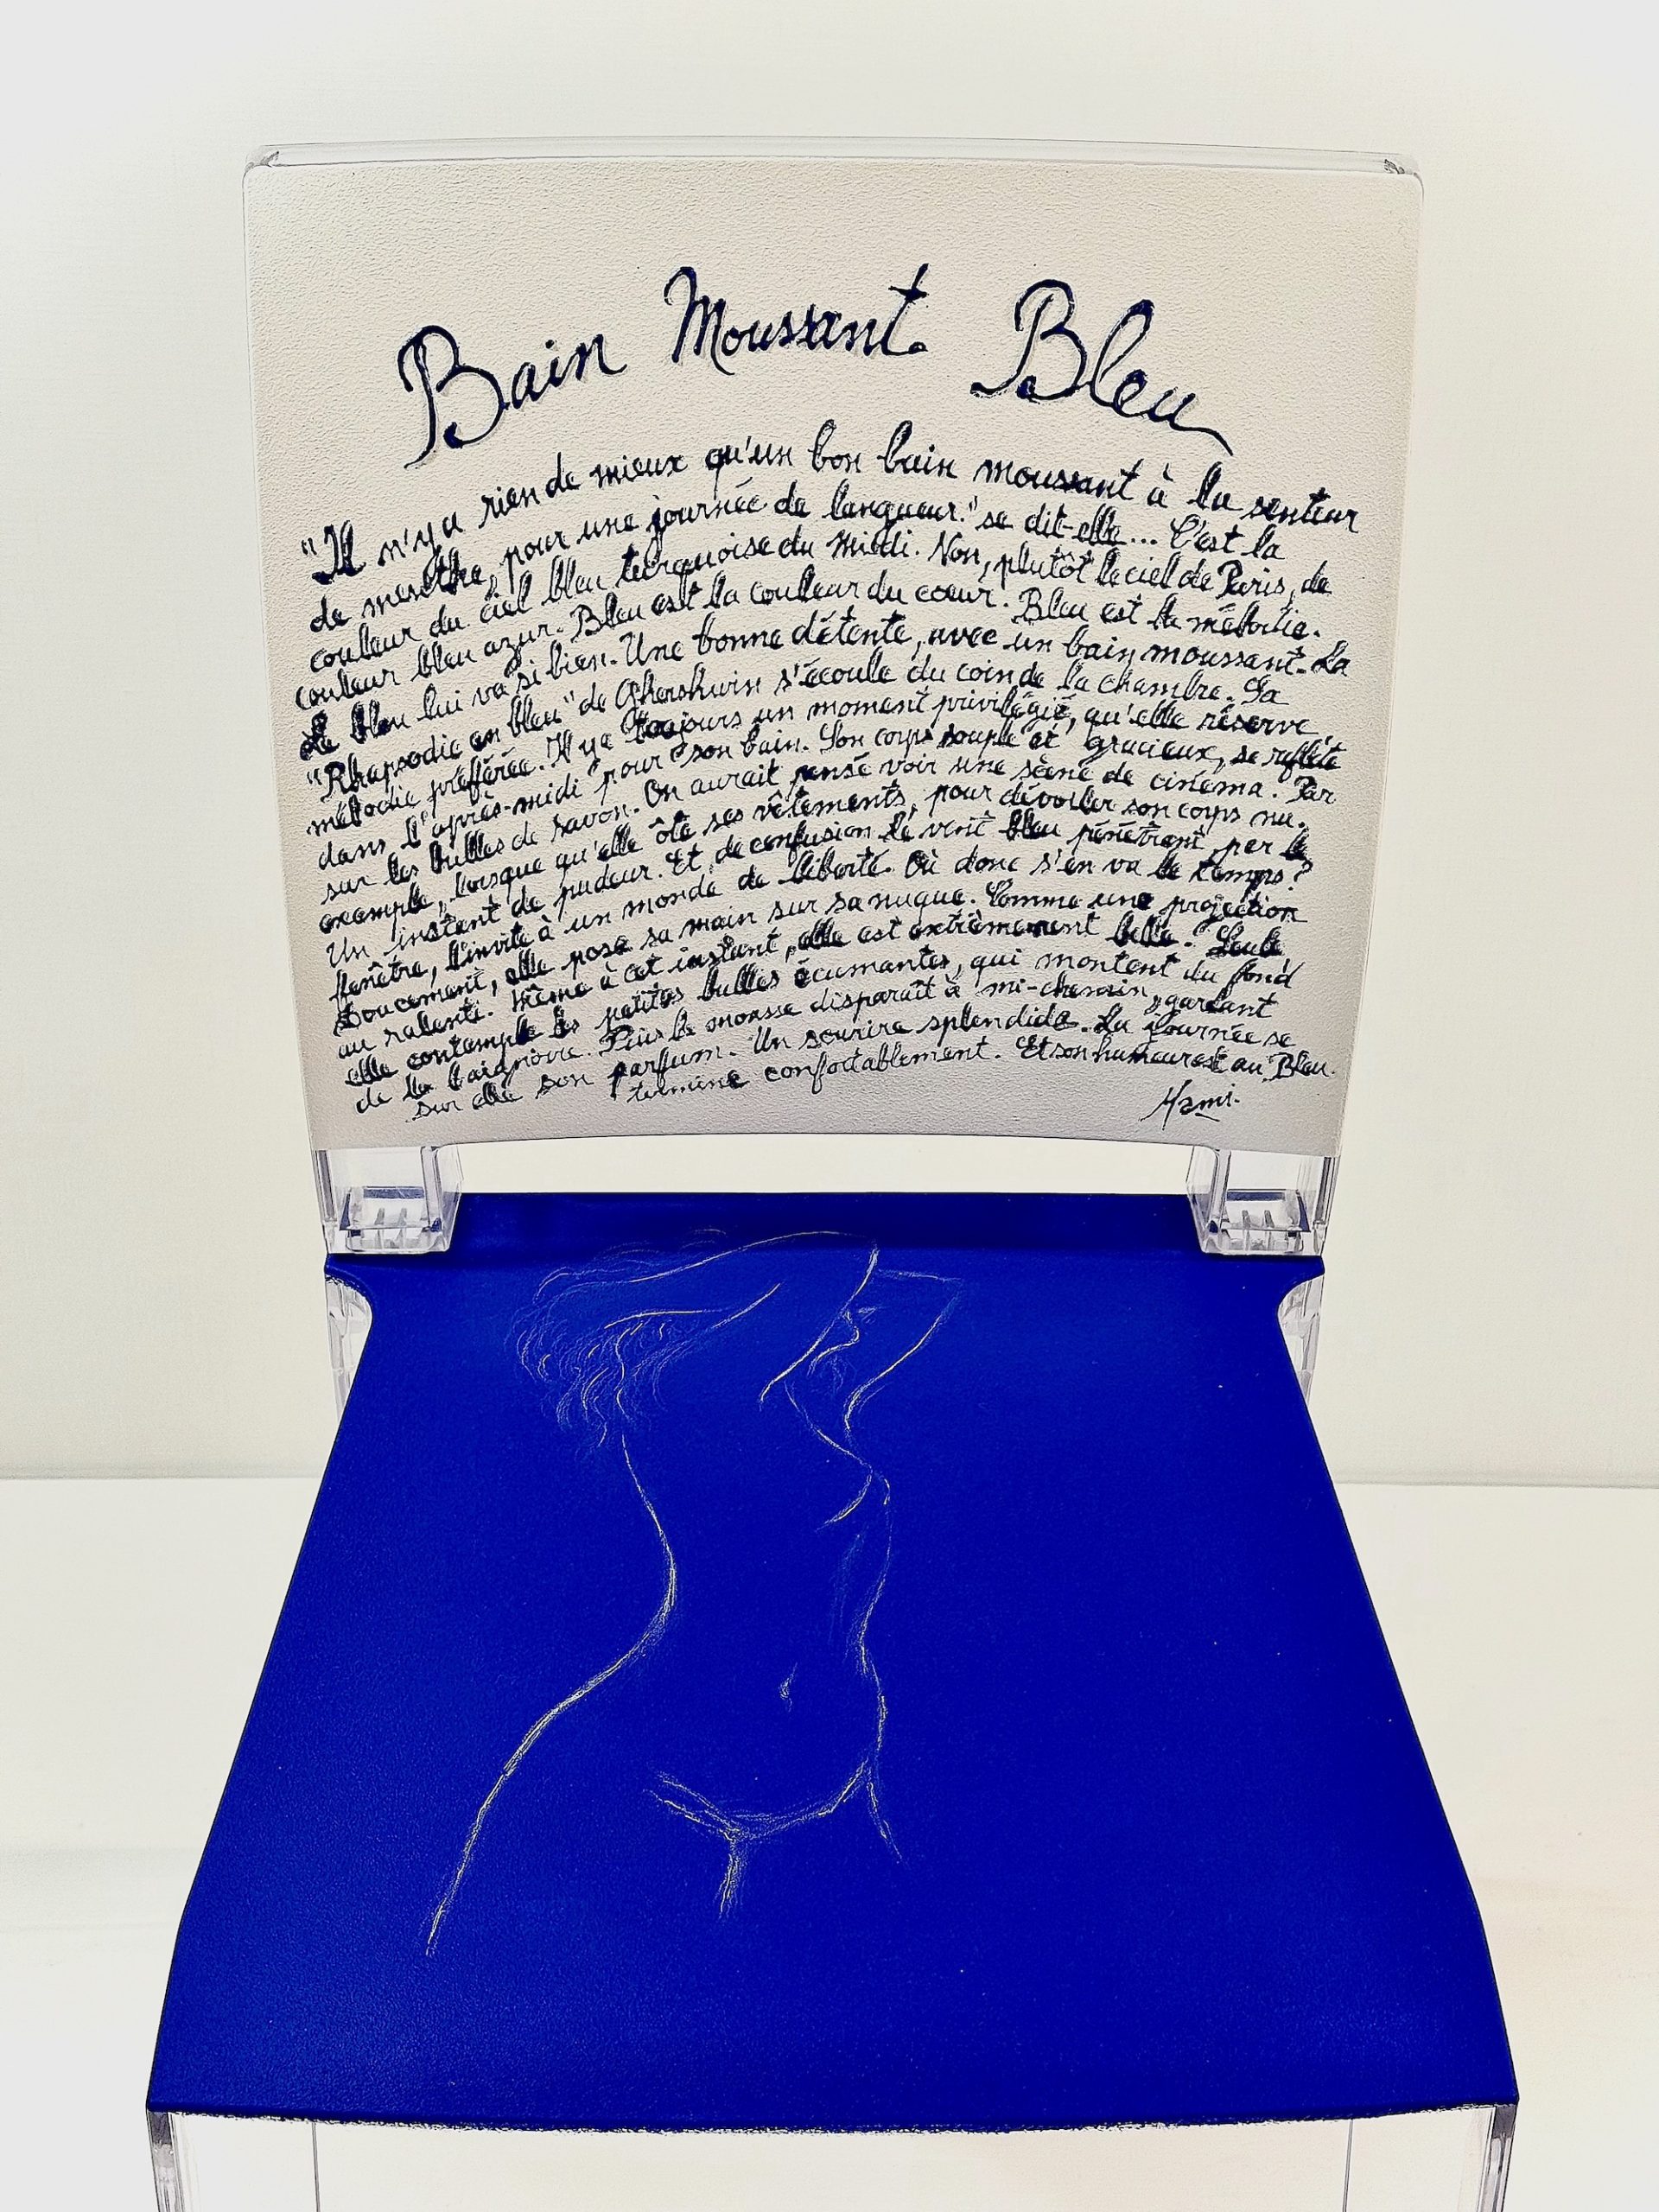 Bain Moussant Bleu
"Il n'y a rien de mieux qu'un bon bain moussant à la senteur
de menthe, pour une journée de langueur." se dit-elle... C'est la
couleur du ciel bleu turquoise du Midi. Non, plutôt le ciel de Paris, de
couleur bleu azur. Bleu est la couleur du coeur. Bleu est la mélodie.
Le bleu lui va si bien. Une bonne détente, avec un bain moussant. La
"Rhapsodie en bleu" de Ghershwin s'écoule du coin de la chambre. Sa
mélodie préférée. Il y a toujours un moment privilégié, qu'elle réserve
dans l'après-midi pour son bain. Son corps souple et gracieux, se reflète
sur les bulles de savon. On aurait pensé voir une scène de cinéma. Par
exemple, lorsque qu'elle ôte ses vêtements, pour dévoiler son corps nu.
Un instant de pudeur. Et, de confusion le vent bleu pénétrant, par la
fenêtre, l'invite à un monde de liberté. Où donc s'en va le temps?
Doucement, elle pose sa main sur sa nuque. Comme une projection
au ralenti. Même à cet instant, elle est extrêmement belle. Seule
elle contemple les petites bulles écumantes, qui montent du fond
de la baignoire. Puis la mousse disparaît à mi-chemin, gardant
sur elle son parfum. Un sourire splendide. La journée se
termine confortablement. Et son humeur est au Bleu.
Hami.